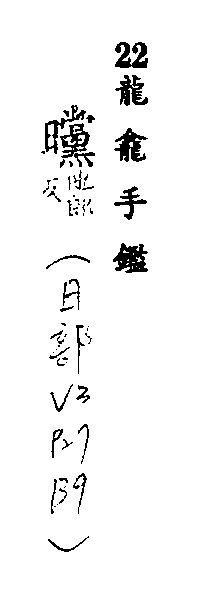 22龍龕手鑑
曭他朗反
(日部V3P27B9)